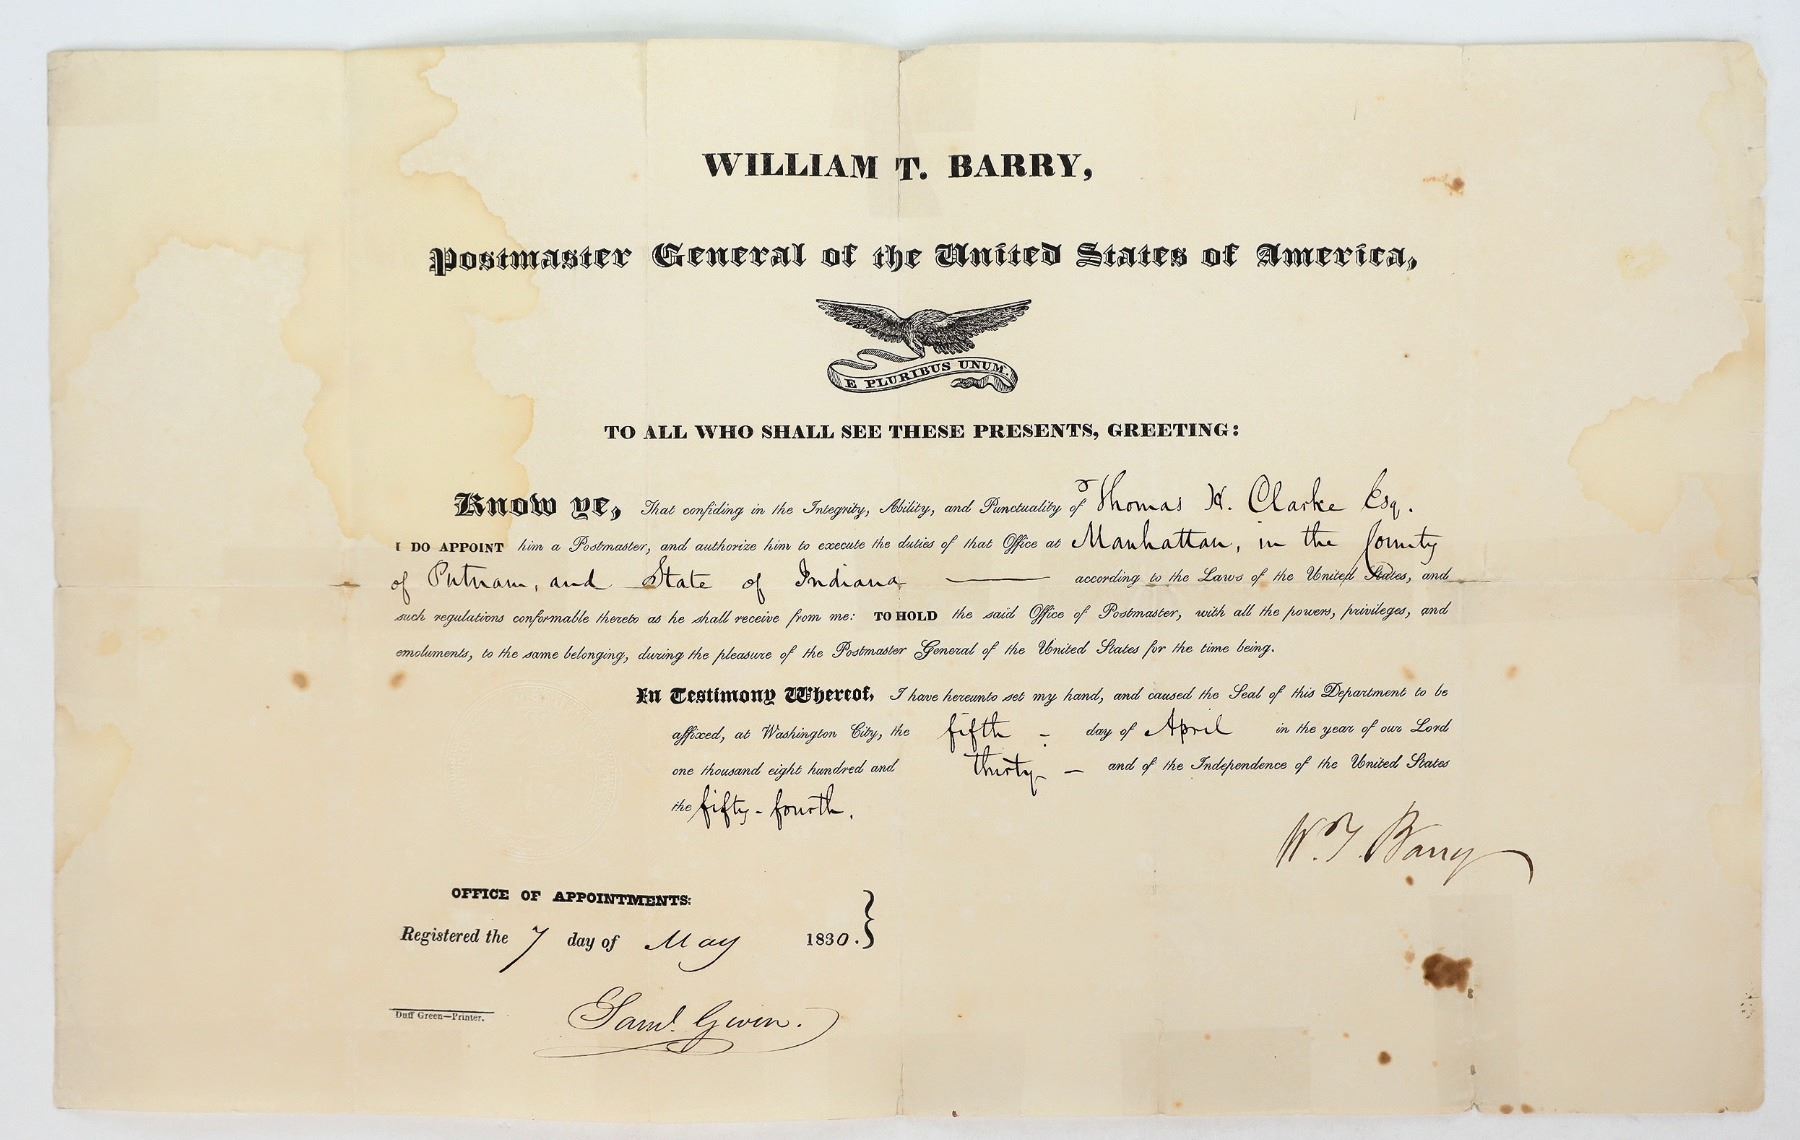 WILLIAM T. BARRY,
Postmaster General of the United States of America,
E PLURIBUS UNUM.
TO ALL WHO SHALL SEE THESE PRESENTS, GREETING:
Know ye, That confiding in the Integrity, Ability, and Punctuality of Thomas H. Clarke Esq.
I DO APPOINT him a Postmaster, and authorize him to execute the duties of that Office at Manhattan, in the County
of Putnam, and State of Indiana — according to the Laws of the United States, and
such regulations conformable thereto as he shall receive from me: TO HOLD the said Office of Postmaster, with all the powers, privileges, and
emoluments, to the same belonging, during the pleasure of the Postmaster General of the United States for the time being.
In Testimony Whereof, I have hereunto set my hand, and caused the Seal of this Department to be
affixed, at Washington City, the fifth - day of April in the year of our Lord
one thousand eight hundred and thirty — and of the Independence of the United States
the fifty-fourth.
W. T. Barry
OFFICE OF APPOINTMENTS:
Registered the 7 day of May 1830.
Saml. Gwin.
Duff Green—Printer.